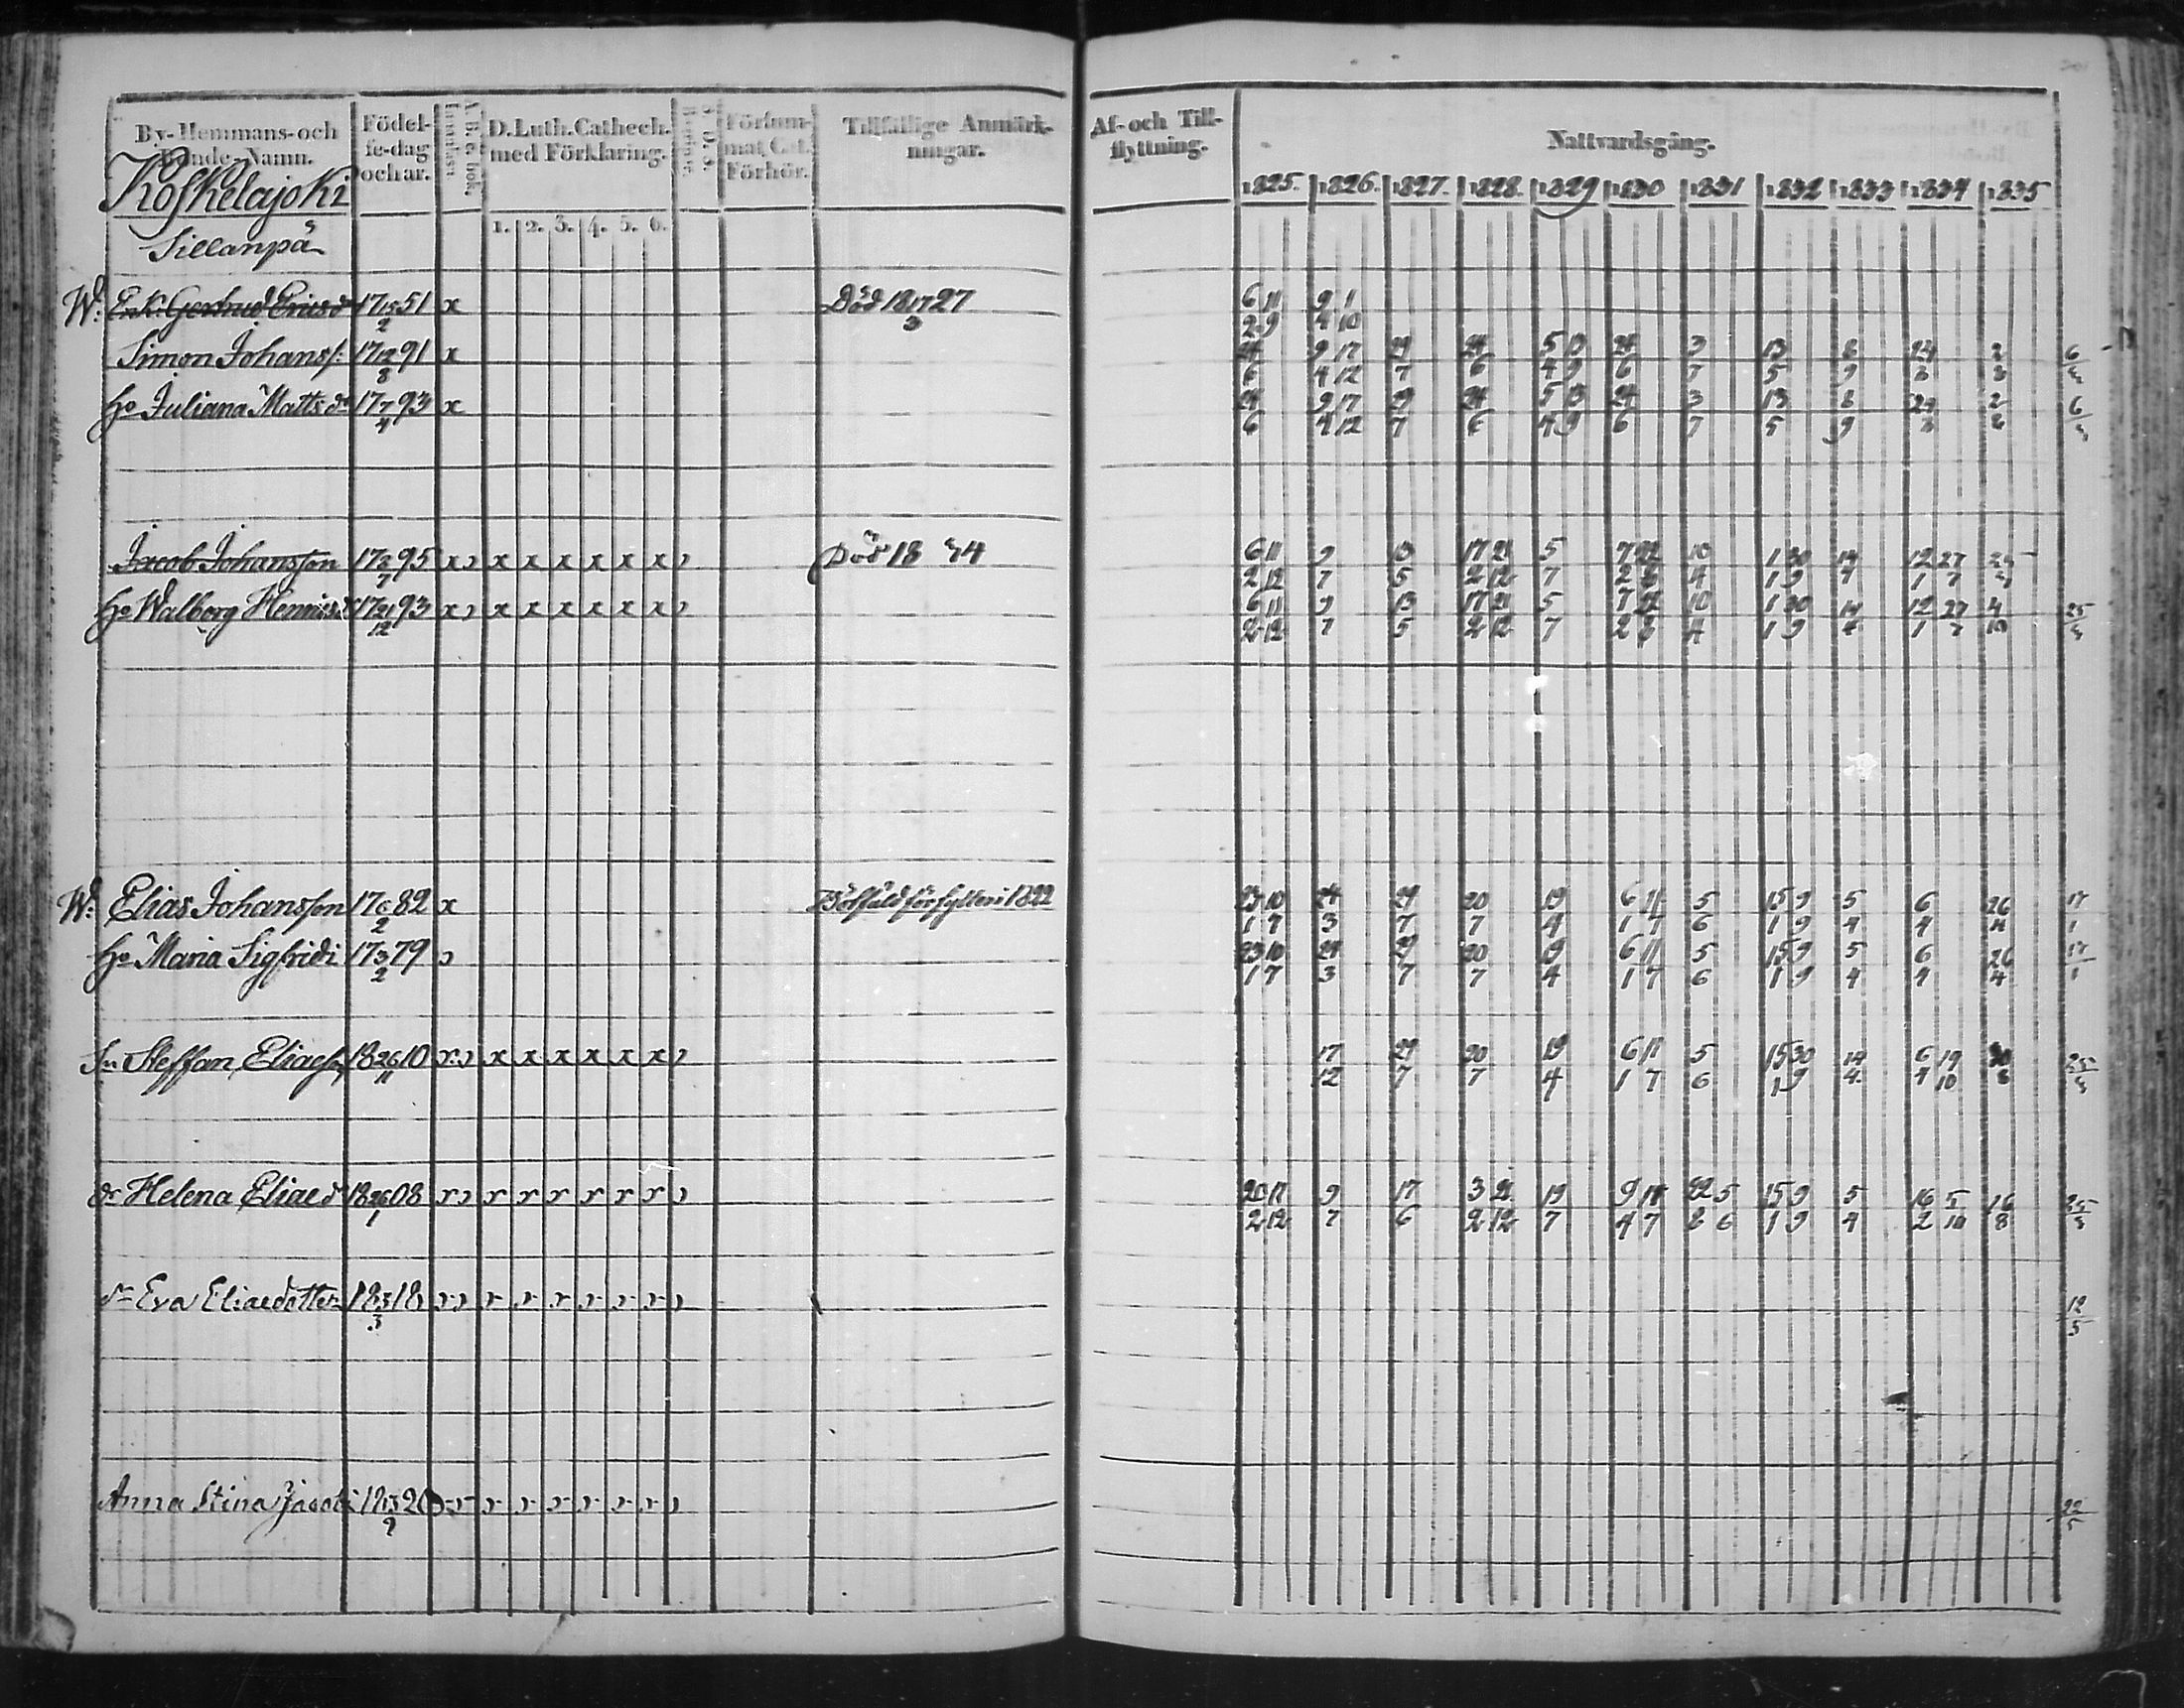 By-Hemmans-och Bonde-Namn. Födel-se-dag och år. A. B. C. bok. D. Luth. Cathech. med Förklaring. Försum-mat Cat. Förhör. Tillfällige Anmärk-ningar. Af- och Till-flyttning. Nattvardsgång.
1. 2. 3. 4. 5. 6. 1825. 1826. 1827. 1828. 1829 1830 1831 1832 1833 1834 1835
Koskelajoki
Sillanpä
W: Enk: Gertrud Ericsdr 17 15/2 51 x Död 18 17/3 27 6/2 11/9 9/4 1/10
Simon Johans: 17 12/8 91 x 24/6 9/4 17/12 29/7 24/6 5/4 13/9 24/6 3/7 13/5 8/9 24/8 2/8 6/3
Ho Juliana Matts dr 17 7/4 93 x 24/6 9/4 17/12 29/7 24/6 5/4 13/9 24/6 3/7 13/5 8/9 24/8 2/8 6/3
Jacob Johansson 17 2/7 95 x x x x x x x Död 18 34 6/2 11/12 9/7 13/5 17/2 21/12 5/7 7/2 22/8 10/4 1/1 30/9 14/4 12/1 27/7
Ho Walborg Henricsd 17 21/12 93 x x x x x x x 6/2 11/12 9/7 13/5 17/2 21/12 5/7 7/2 22/8 10/4 1/1 30/9 14/4 12/1 27/7 4/10 25/3
W: Elias Johansson 17 6/2 82 x Bötfäld för fylleri 1822 23/1 10/7 24/3 29/7 20/7 19/4 6/1 11/7 5/6 15/1 9/9 5/4 6/4 26/4 17/1
Ho Maria Sigfridi 17 3/2 79 23/1 10/7 24/3 29/7 20/7 19/4 6/1 11/7 5/6 15/1 9/9 5/4 6/4 26/4 17/1
Sn Steffan Eliaesn 18 26/11 10 x x x x x x x 17/12 29/7 20/7 19/4 6/1 11/7 5/6 15/1 30/9 14/4 6/4 19/10 25/3
dr Helena Eliaed 18 26/1 08 x x x x x x x 20/2 17/12 9/7 17/6 3/2 21/12 19/7 9/4 18/7 22/8 5/6 15/1 9/9 5/4 16/2 5/10 16/8 25/3
dr Eva Eliaedotter 18 18 12/5
Anna Stina Jacobs 22/5